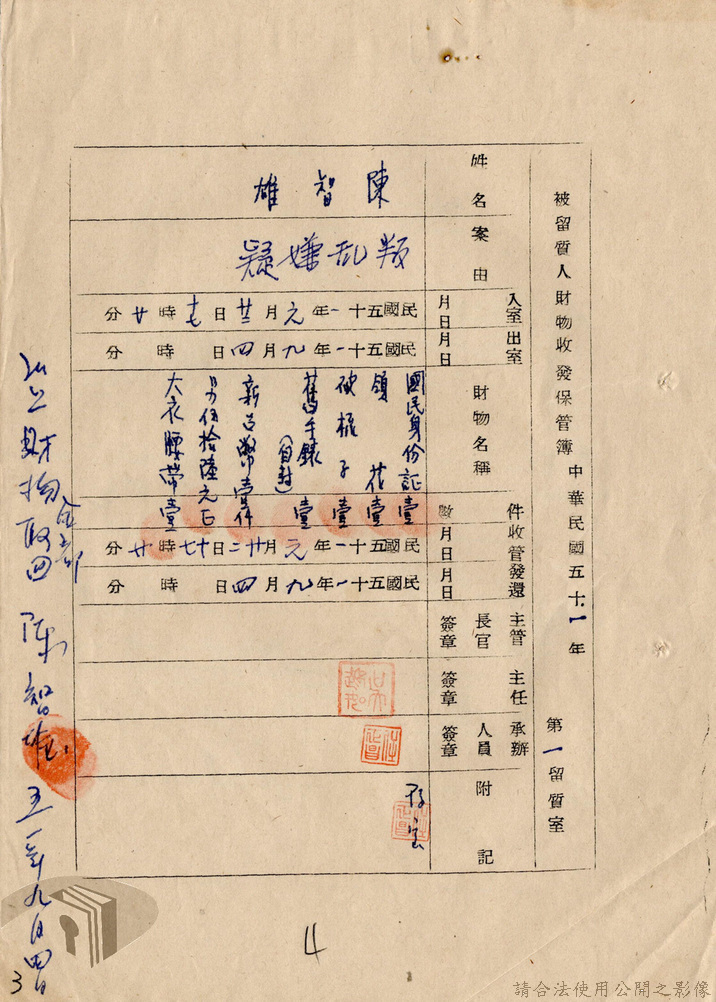 被留質人財物收發保管簿 中華民國五十一年 第一留質室
姓名
陳智雄
案由
叛乱嫌疑
入室月日
民國五十一年元月廿二日十七時廿分
出室月日
民國五十一年九月四日 時 分
財物名稱
件數
國民身份証壹
領花壹
破梳子壹
舊手錶(自封)壹
新台幣壹件
另伍拾陸元正
大衣腰帶壹
收管月日
民國五十一年元月廿二日十七時廿分
發還月日
民國五十一年九月四日 時 分
主管長官簽章
主任簽章
承辦人員簽章
附記
以上財物全部取回 陳智雄 五一年九月四日
4
3
請合法使用公開之影像